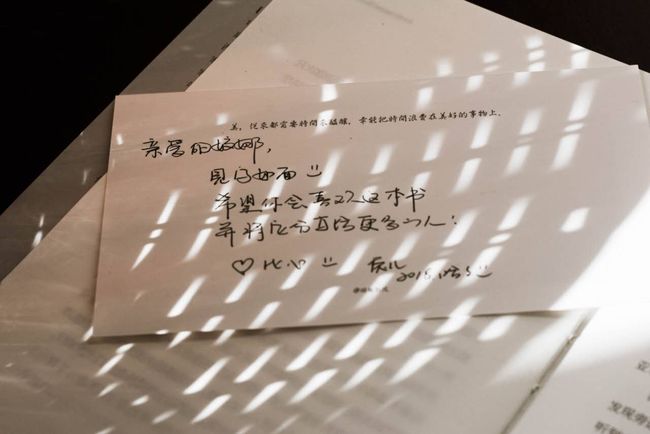 美，从来都需要時間來醞釀，幸能把時間浪費在美好的事物上。
亲爱的婷娜，
见字如面
希望你会喜欢这本书
并将它分享给更多的人！
♡比心
2018
发现旁
听